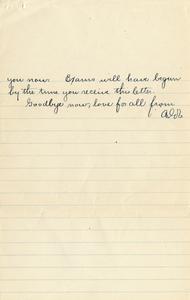 you now. Exams will have begun
by the time you receive this letter.
Goodbye now, love for all from